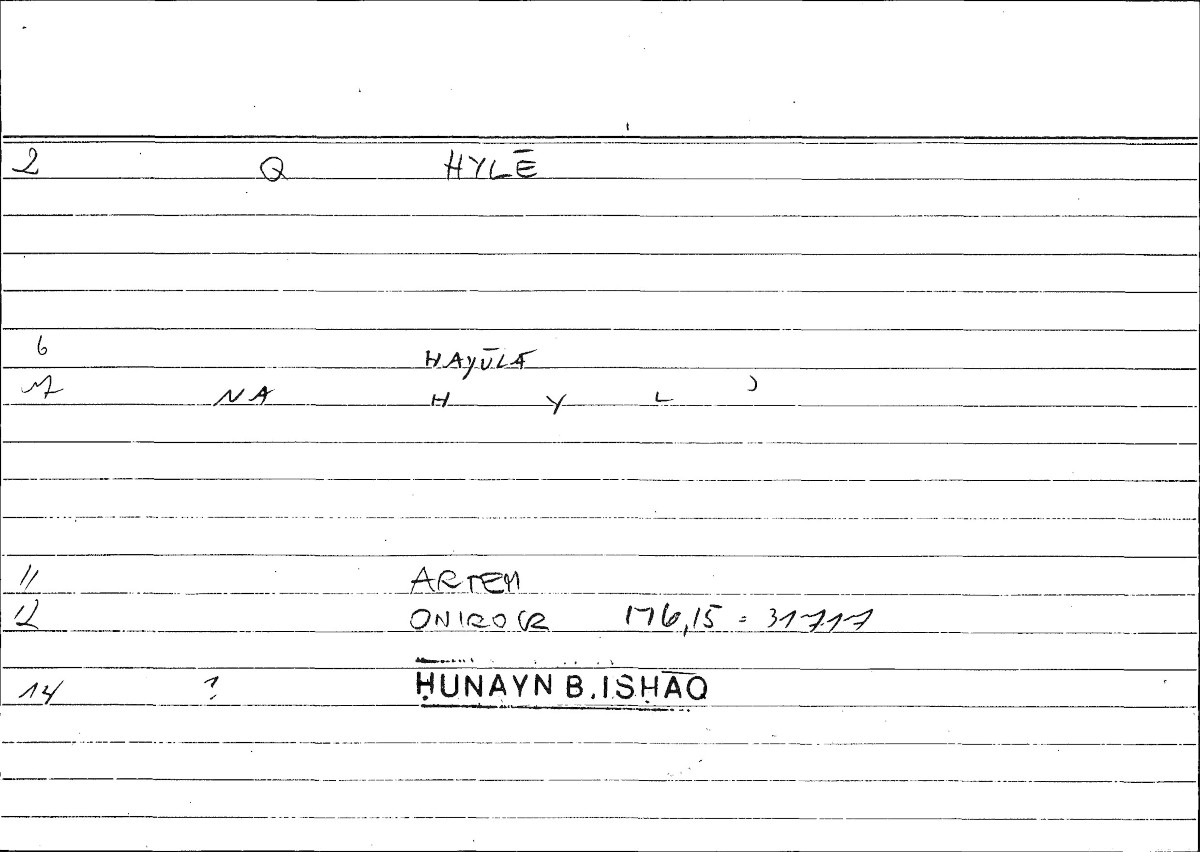 2 Q HYLĒ
6 HAYŪLĀ
7 NA H Y L )
11 ARTEM
12 ONIROCR 176,15 = 317,17
14 ? ḤUNAYN B. ISḤĀQ